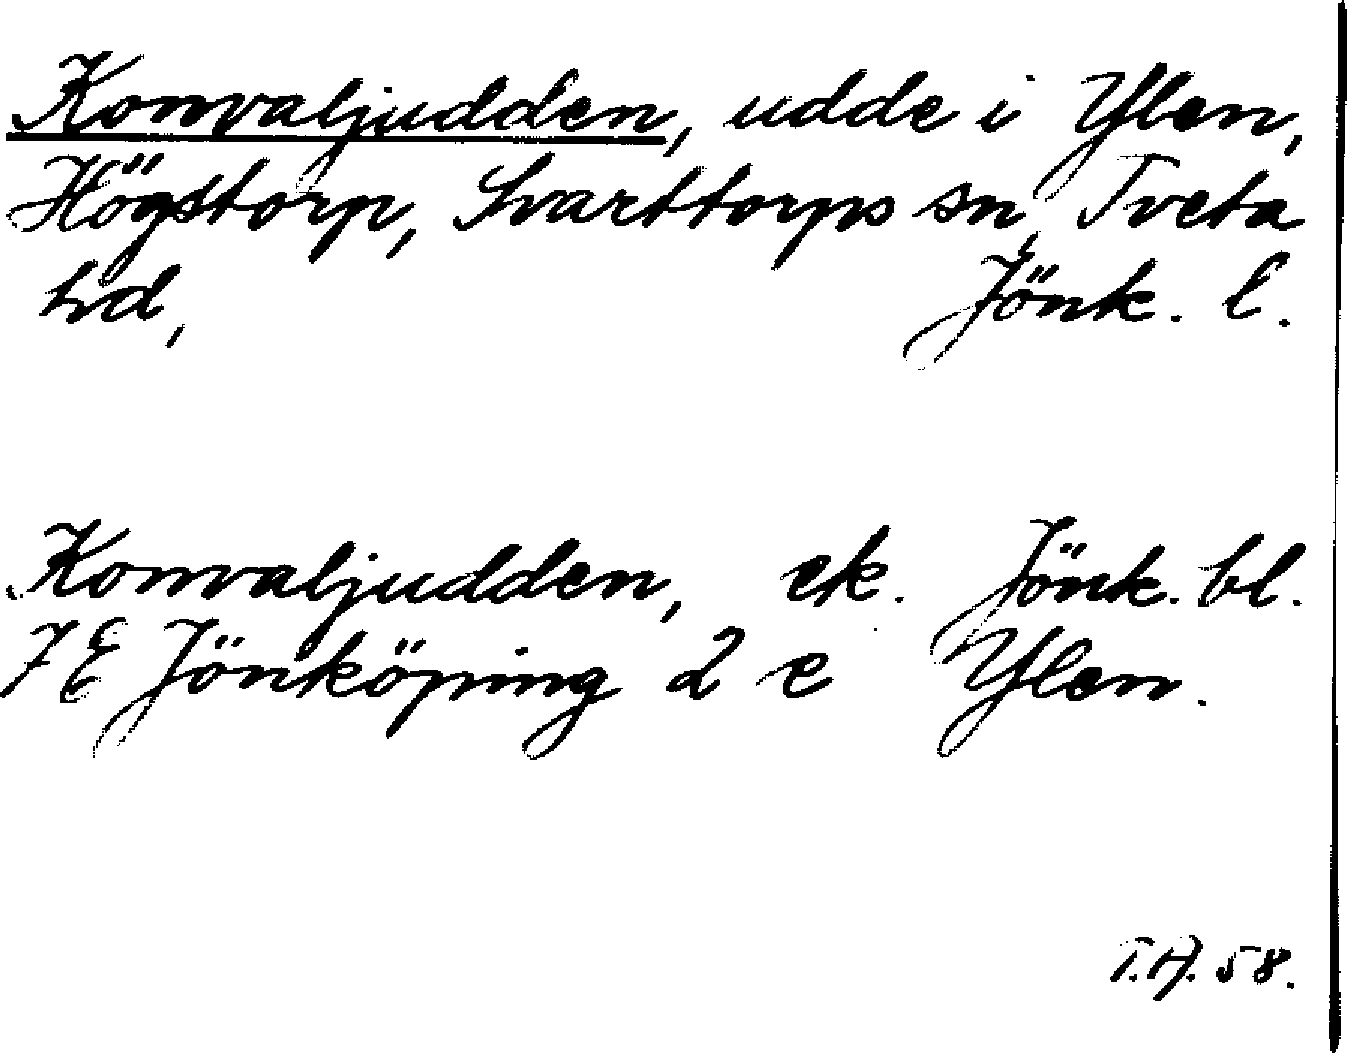 Konvaljudden, udde i Ylen,
Högstorp, Svarttorps sn, Tveta
hd, Jönk. l.
Konvaljudden, ek. Jönk. bl.
7 E Jönköping 2 e Ylen.
T.A. 58.